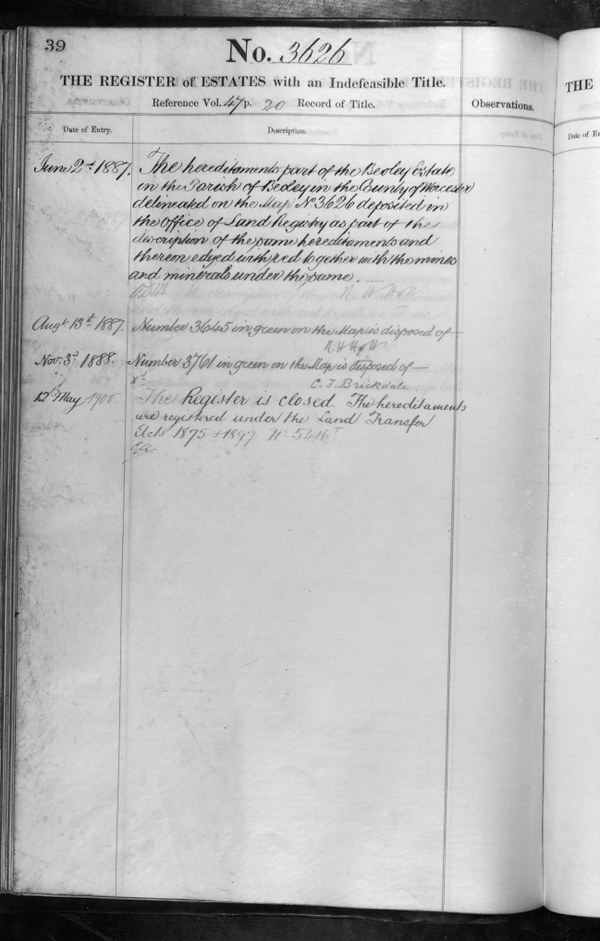 39
No. 3626
THE REGISTER of ESTATES with an Indefeasible Title.
Reference Vol. 47 p. 20 Record of Title.
Observations.
Date of Entry.
Description.
June 2nd 1887. The hereditaments part of the Beoley Estate
in the Parish of Beoley in the County of Worcester
delineated on the Map No 3626 deposited in
the office of Land Registry as part of the
discription of the same hereditaments and
thereon edged with red together with the mines
and minerals under the same.
R H H
Augt 13th 1887. Number 3645 in green on the Map is disposed of —
R H H
Nov. 3d 1888. Number 3761 in green on the Map is disposed of —
C. F. Brickdale
12th May 1900. The Register is closed. The hereditaments
are registered under the Land Transfer
Acts 1875 & 1897 No
THE
Date of En